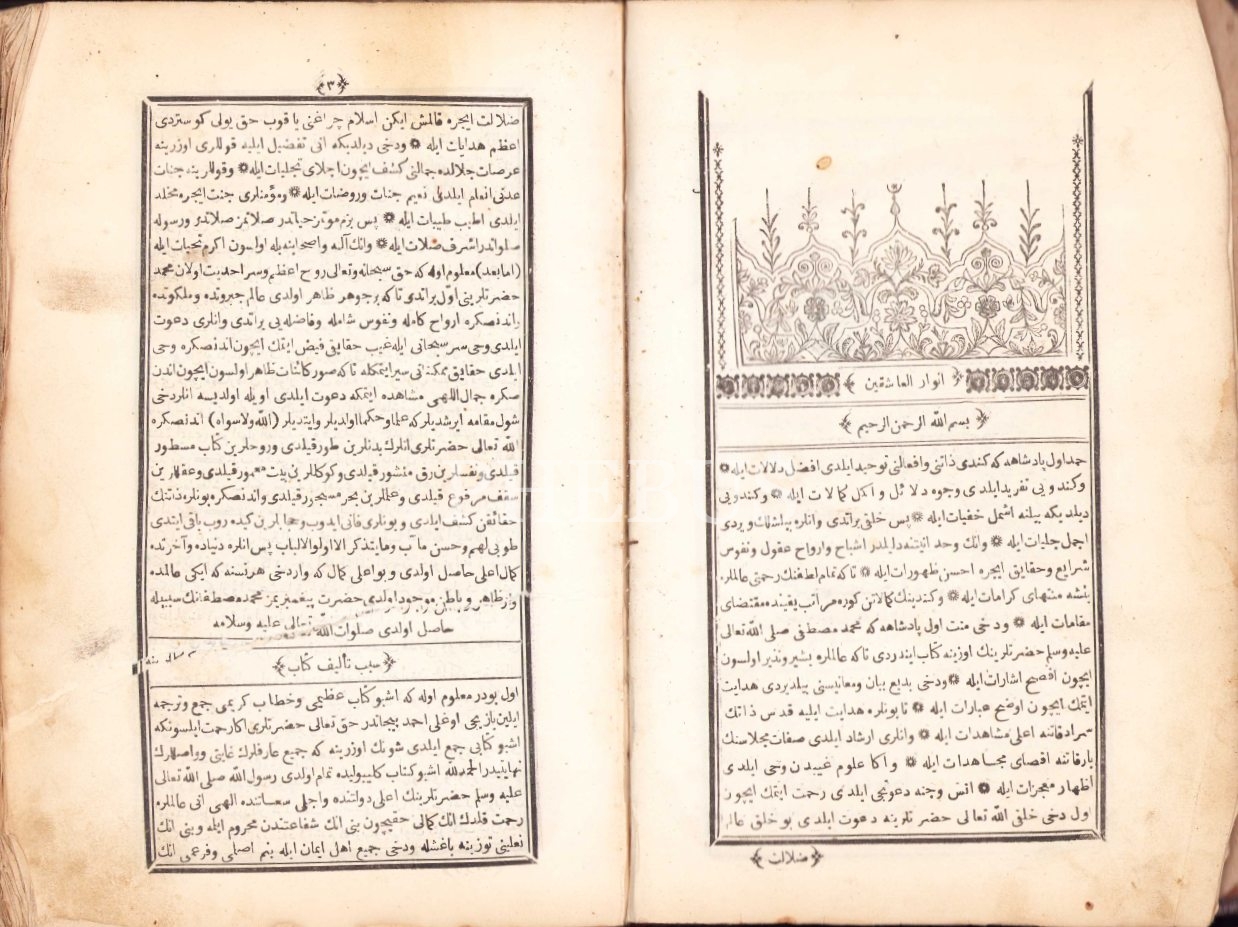 انوار العاشقين
بسم الله الرحمن الرحيم
حمد اول پادشاهه كه كندى ذاتنى وافعالنى توحيد ايلدى افضل دلالات ايله
وكندويى تفريد ايلدى وجوه دلائل واكمل كمالات ايله وكندويى
ديلديكه بيلنه اشمل خفيات ايله پس خلقى يراتدى وانلره بيلشلك ويردى
اجمل جليات ايله وانك وحدانيتنه دليلدر اشباح وارواح عقول ونفوس
شرايع وحقايق ايچره احسن ظهورات ايله تاكه تمام لطفنك رحمتى عالملره
يتشه منتهاى كرامات ايله وكندينك كمالاتن كوره مراتب يقينده مقتضاى
مقامات ايله ودخى منت اول پادشاهه كه محمد مصطفى صلى الله تعالى
عليه وسلم حضرتلرينك اوزينه كتاب ايندردى تاكه عالملره بشير ونذير اولسون
ايچون افصح اشارات ايله ودخى بديع بيان ومعانيسنى بيلديردى هدايت
ايتمك ايچون اوضح عبارات ايله تا بونلره هدايت ايليه قدس ذاتك
سرادقاتنه اعلى مشاهدات ايله وانلرى ارشاد ايلدى صفات مجلاسنك
بارقاتنه اقصاى مجاهدات ايله واكا علوم غيبدن وحى ايلدى
اظهار معجزات ايله انس وجنه دعوتجى ايلدى رحمت ايتمك ايچون
اول دخى خلقى الله تعالى حضرتلرينه دعوت ايلدى بو خلق عالم
ضلالت
٣
ضلالت ايچره قالمش ايكن اسلام چراغنى ياقوب حق يولى كوستردى
اعظم هدايات ايله ودخى ديلديكه انى تفضيل ايليه قوللرى اوزرينه
عرصات جلالده جمالنى كشف ايچون اجلاى تجليات ايله وقوللرينه جنات
عدنى انعام ايلدى نعيم جنات وروضات ايله ومؤمنلرى جنت ايچره مخلد
ايلدى اطيب طيبات ايله پس بزم موتمز حياتمز صلاتمز صلاتدر ورسوله
صلواتدر اشرف صلات ايله وانك آلبه واصحابنه بله اولسون اكرم تحيات ايله
(اما بعد) معلوم اوله كه حق سبحانه وتعالى روح اعظم وسر احديت اولان محمد
حضرتلرينى اول يراتدى تاكه بر جوهر ظاهر اولدى عالم جبروتده وملكوتده
اندنصكره ارواح كامله ونفوس شامله وفاضله يى يراتدى وانلرى دعوت
ايلدى وحى سر سبحانى ايله غيب حقايقى فيض ايتمك ايچون اندنصكره وحى
ايلدى حقايق ممكنه نى سير ايتمكله تاكه صور كائنات ظاهر اولسون ايچون اندن
صكره جمال اللهى مشاهده ايتمكه دعوت ايلدى اويله اولديسه انلر دخى
شول مقامه ايرشديلر كه علما وحكما اولديلر وايتديلر (الله ولا سواه) اندنصكره
الله تعالى حضرتلرى انلرك بدنلرين طور قيلدى وروحلرين كتاب مسطور
قيلدى ونفسلرين رق منشور قيلدى وكوكللرين بيت معمور قيلدى وعقللرين
سقف مرفوع قيلدى وعلملرين بحر مسجور قيلدى واندنصكره بونلره ذاتنك
حقائقن كشف ايلدى وبونلرى فانى ايدوب وحجابلرين كيده روب باقى ايتدى
طوبى لهم وحسن مآب وما يتذكر الا اولوا الالباب پس انلره دنياده وآخرتده
كمال اعلى حاصل اولدى وبو اعلى كمال كه واردخى هر نسنه كه ايكى عالمده
وار ظاهر وباطن موجود اولدى حضرت پيغمبريمز محمد مصطفانك سببيله
حاصل اولدى صلوات الله تعالى عليه وسلامه
سبب تأليف كتاب
اول بودر معلوم اوله كه اشبو كتاب عظيمى وخطاب كريمى جمع وترجمه
ايلين يازيجى اوغلى احمد بيجاندر حق تعالى حضرتلرى اكا رحمت ايلسونكه
اشبو كتابى جمع ايلدى شونك اوزرينه كه جميع عارفلرك غايتى وواصللرك
نهايتيدر الحمد لله اشبو كتاب كليبوليده تمام اولدى رسول الله صلى الله تعالى
عليه وسلم حضرتلرينك اعلى دولتنده واجلى سعادتنده الهى انى عالملره
رحمت قلدك انك كمالى حقيچون بنى انك شفاعتندن محروم ايلمه وبنى انك
نعلينى توزينه باغشله ودخى جميع اهل ايمان ايله بنم اصلمى وفرعمى انك